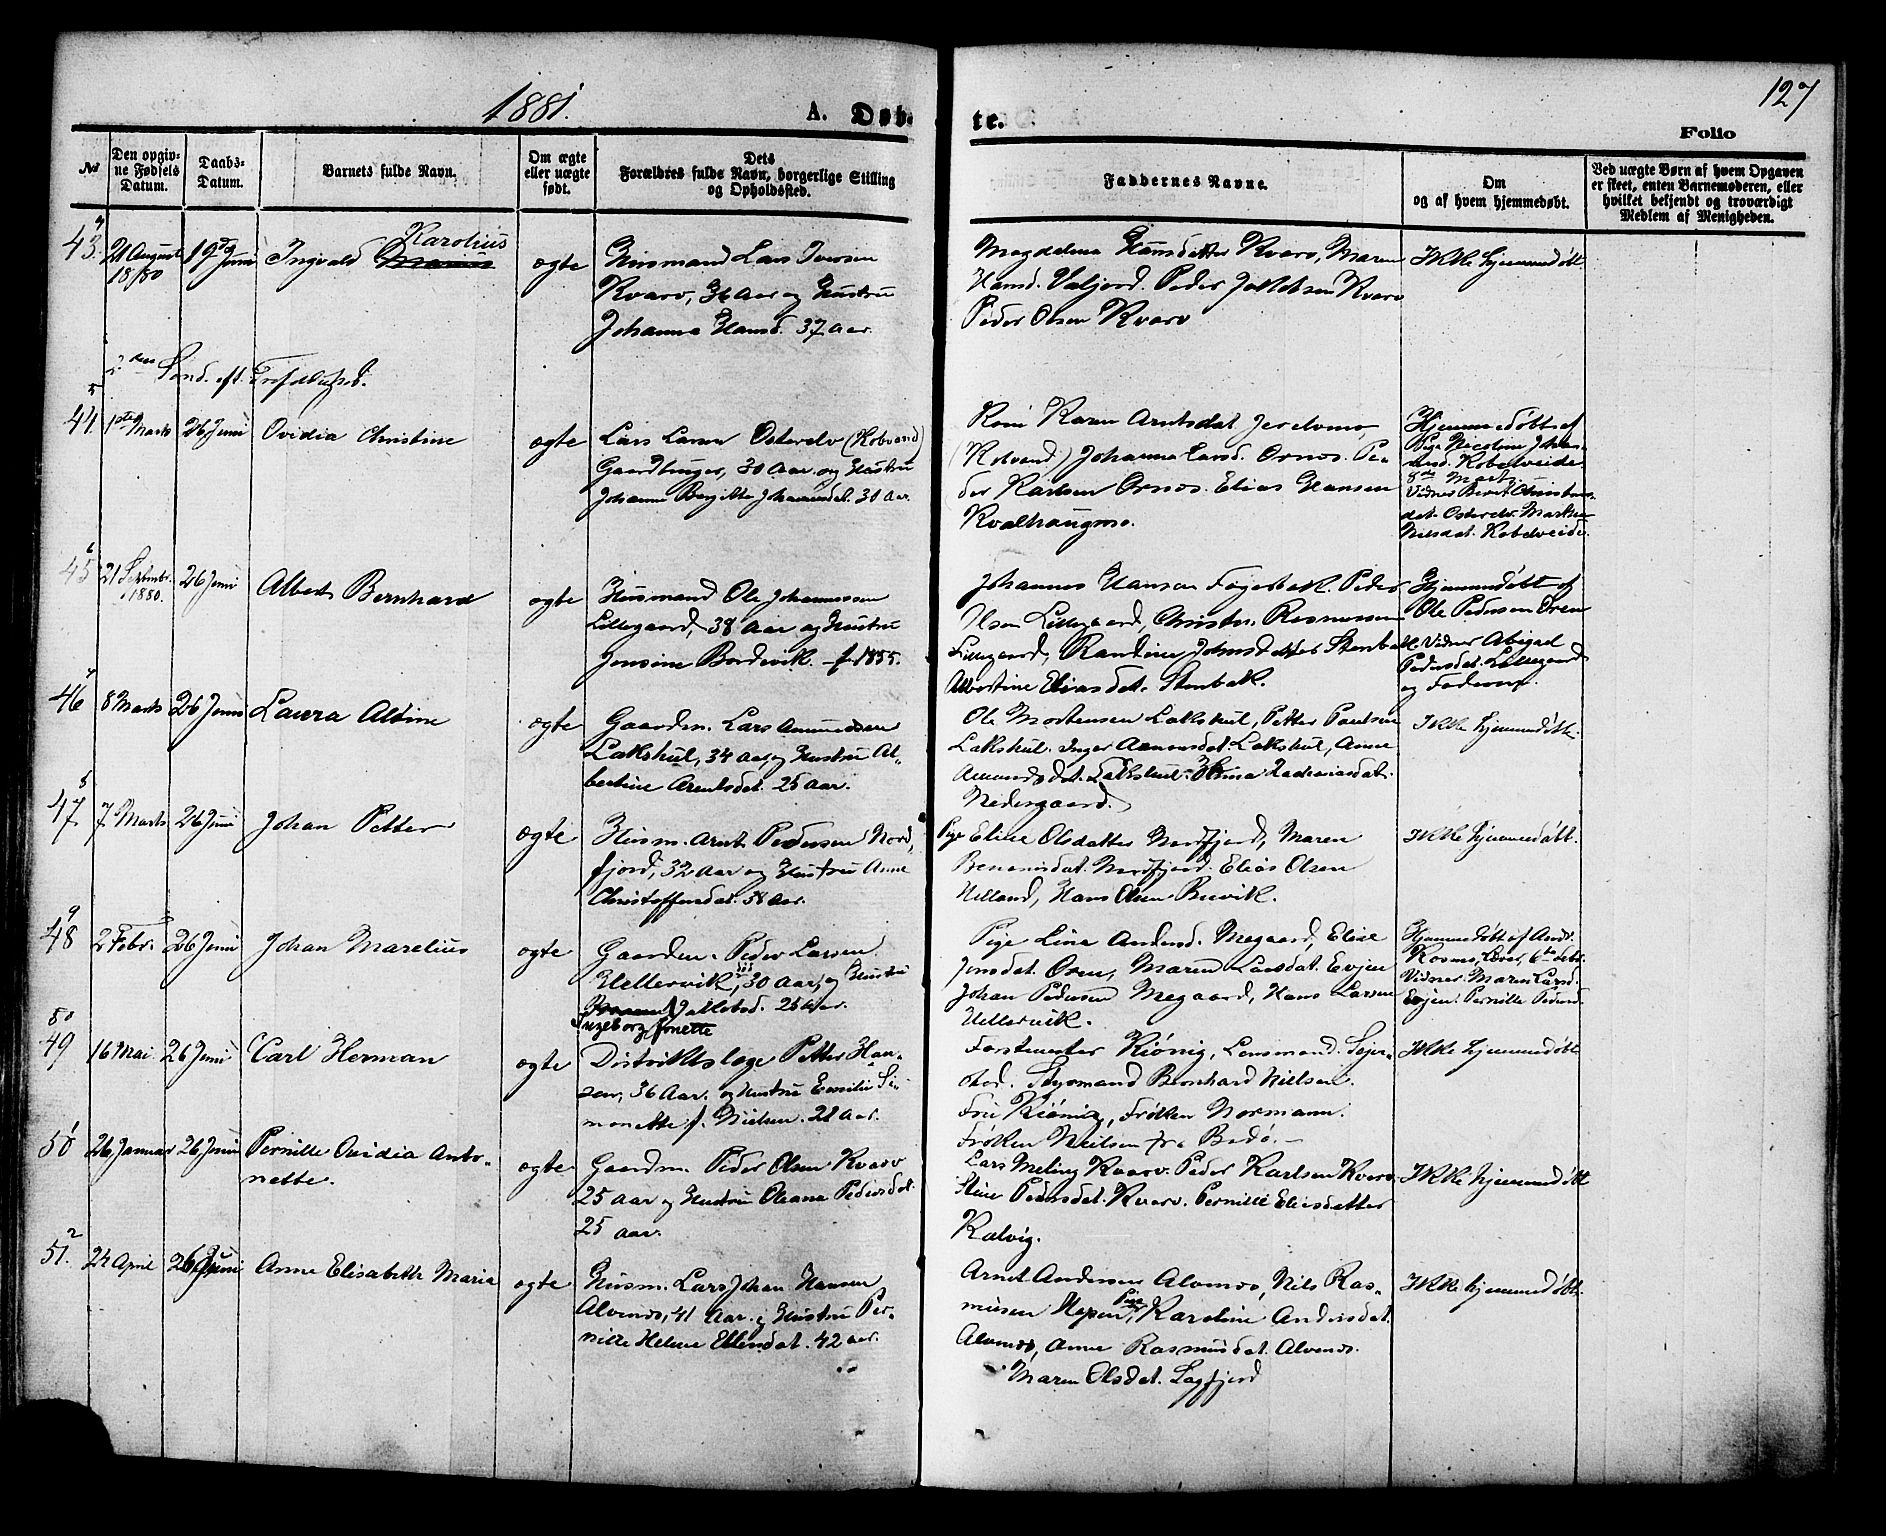 1881.
A. Døb-
te.
127
Folio
No
Den opgiv-
ne Fødsels
Datum.
Daabs-
Datum.
Barnets fulde Navn.
Om ægte
eller uægte
født.
Dets
Forældres fulde Navn, borgerlige Stilling
og Opholdssted.
Faddernes Navne.
Om
og af hvem hjemmedøbt.
Ved uægte Børn af hvem Opgaven
er skeet, enten Barnemoderen, eller
hvilket bekjendt og troværdigt
Medlem af Menigheden.
4
43.
21 August
1880
19de Juni
Karolius
Ingvald Marius
ægte
Husmand Lars Iversen
Kvarv, 36 Aar og Hustru
Johanna Hansd. 37 Aar.
Magdelena Hansdatter Kvarv, Maren
Hansd. Valjord. Peder Kvarv
Peder Olsen Kvarv
Ikke hjemmedøbt
2den Sønd. eft.
5
44.
1ste Marts
26 Juni
Ovidia Christine
ægte
Lars Larsen Osterelv (Kobvand)
Gaardbruger, 30 Aar og Hustru
Johanna Bergitte 30 Aar.
Kone Karen Arntsdat.
(Kobvand) Johanna Larsd. Ornes. Pe-
der Karlsen Ornes. Elias Hansen
Kvalhaugmo.
Hjemmedøbt af
Pige Nicoline
Kobelveide
8de Marts.
Vidner Berit
dat. Osterelv.
Nilsdat. Kobelveide.
6
45
21 Septembr.
1880.
26 Juni
Albert Bernhard
ægte
Husmand Ole Johannessen
Lillegaard, 38 Aar og Hustru
Jensine Bordevik. f. 1855.
Johannes Hansen Fagerbak. Peder
Olsen Lillegaard, Christen Rasmussen
Lillegaard, Randine Johnsdatter Stenbak
Albertine Eliasdat. Stenbak.
Hjemmedøbt af
Ole Pedersen
Vidner Abigael
Pedersdat. Lillegaard
og Faderen.
7
46
8 Marts
26 Juni
Laura Albine
ægte
Gaardm. Lars Amundsen
Lakshul, 34 Aar, og Hustru Al-
bertine Arentsdat. 25 Aar.
Ole Mortensen Lakshul, Petter Paulsen
Lakshul. Inger Lakshul, Anne
Amundsdat. Lakshul. Zachariasdat.
Nedergaard.
Ikke hjemmedøbt.
8
47
7 Marts
26 Juni
Johan Petter
ægte
Husm. Arnt Pedersen Nord-
fjord, 32 Aar og Hustru Anne
Christoffersdat. 38 Aar.
Pige Eline Olsdatter Nordfjord, Maren
Nordfjord. Elias Olsen
Helland, Hans Olsen
Ikke hjemmedøbt.
9
48
2 Febr.
26 Juni
Johan Marelius
ægte
Gaardm. Peder Larsen
Hellervik, 30 Aar, og Hustru
26 Aar.
Ingeborg Jonette
Pige Lina Andersd. Megaard, Elise
Jensdat. Osen, Maren Larsdat. Evjen
Johan Pedersen Megaard, Hans Larsen
Hellervik.
Hjemmedøbt af
6te
Vidner Maren Larsd.
Evjen. Pernille Pedersd.
50
49
16 Mai.
26 Juni
Carl Herman
ægte
Distriktslæge Petter Han-
sen, 36 Aar. og Hustru Emilie Si-
monette f. Nielsen. 21 Aar.
Forstmester Kiønig, Lensmand
Styrmand Bernhard Nielsen.
Fru Kiønig, Frøken Normann.
Frøken Nielsen fra Bodø.
Ikke hjemmedøbt
1
50
26 Januar
26 Juni
Pernille Ovidia Anto-
nette.
ægte
Gaardm. Peder Olsen Kvarv
25 Aar og Hustru Oleana Pedersdat.
25 Aar.
Lars Meling Kvarv. Peder Karlsen Kvarv.
Stine Pedersdat. Kvarv. Pernille Eliasdatter
Kalvig.
Ikke hjemmedøbt
2
51.
24 April
26 Juni
Anne Elisabeth Maria
ægte
Husm. Lars Johan Hansen
Alvenes, 41 Aar. og Hustru Per-
nille Helene Ellensdat. 42 Aar.
Arnt Andersen Alvenes, Nils Ras-
musen Hopen, Pige Karoline Andersdat.
Alvenes, Anne Rasmusdat. Alvenes.
Maren Olsdat.
Ikke hjemmedøbt.